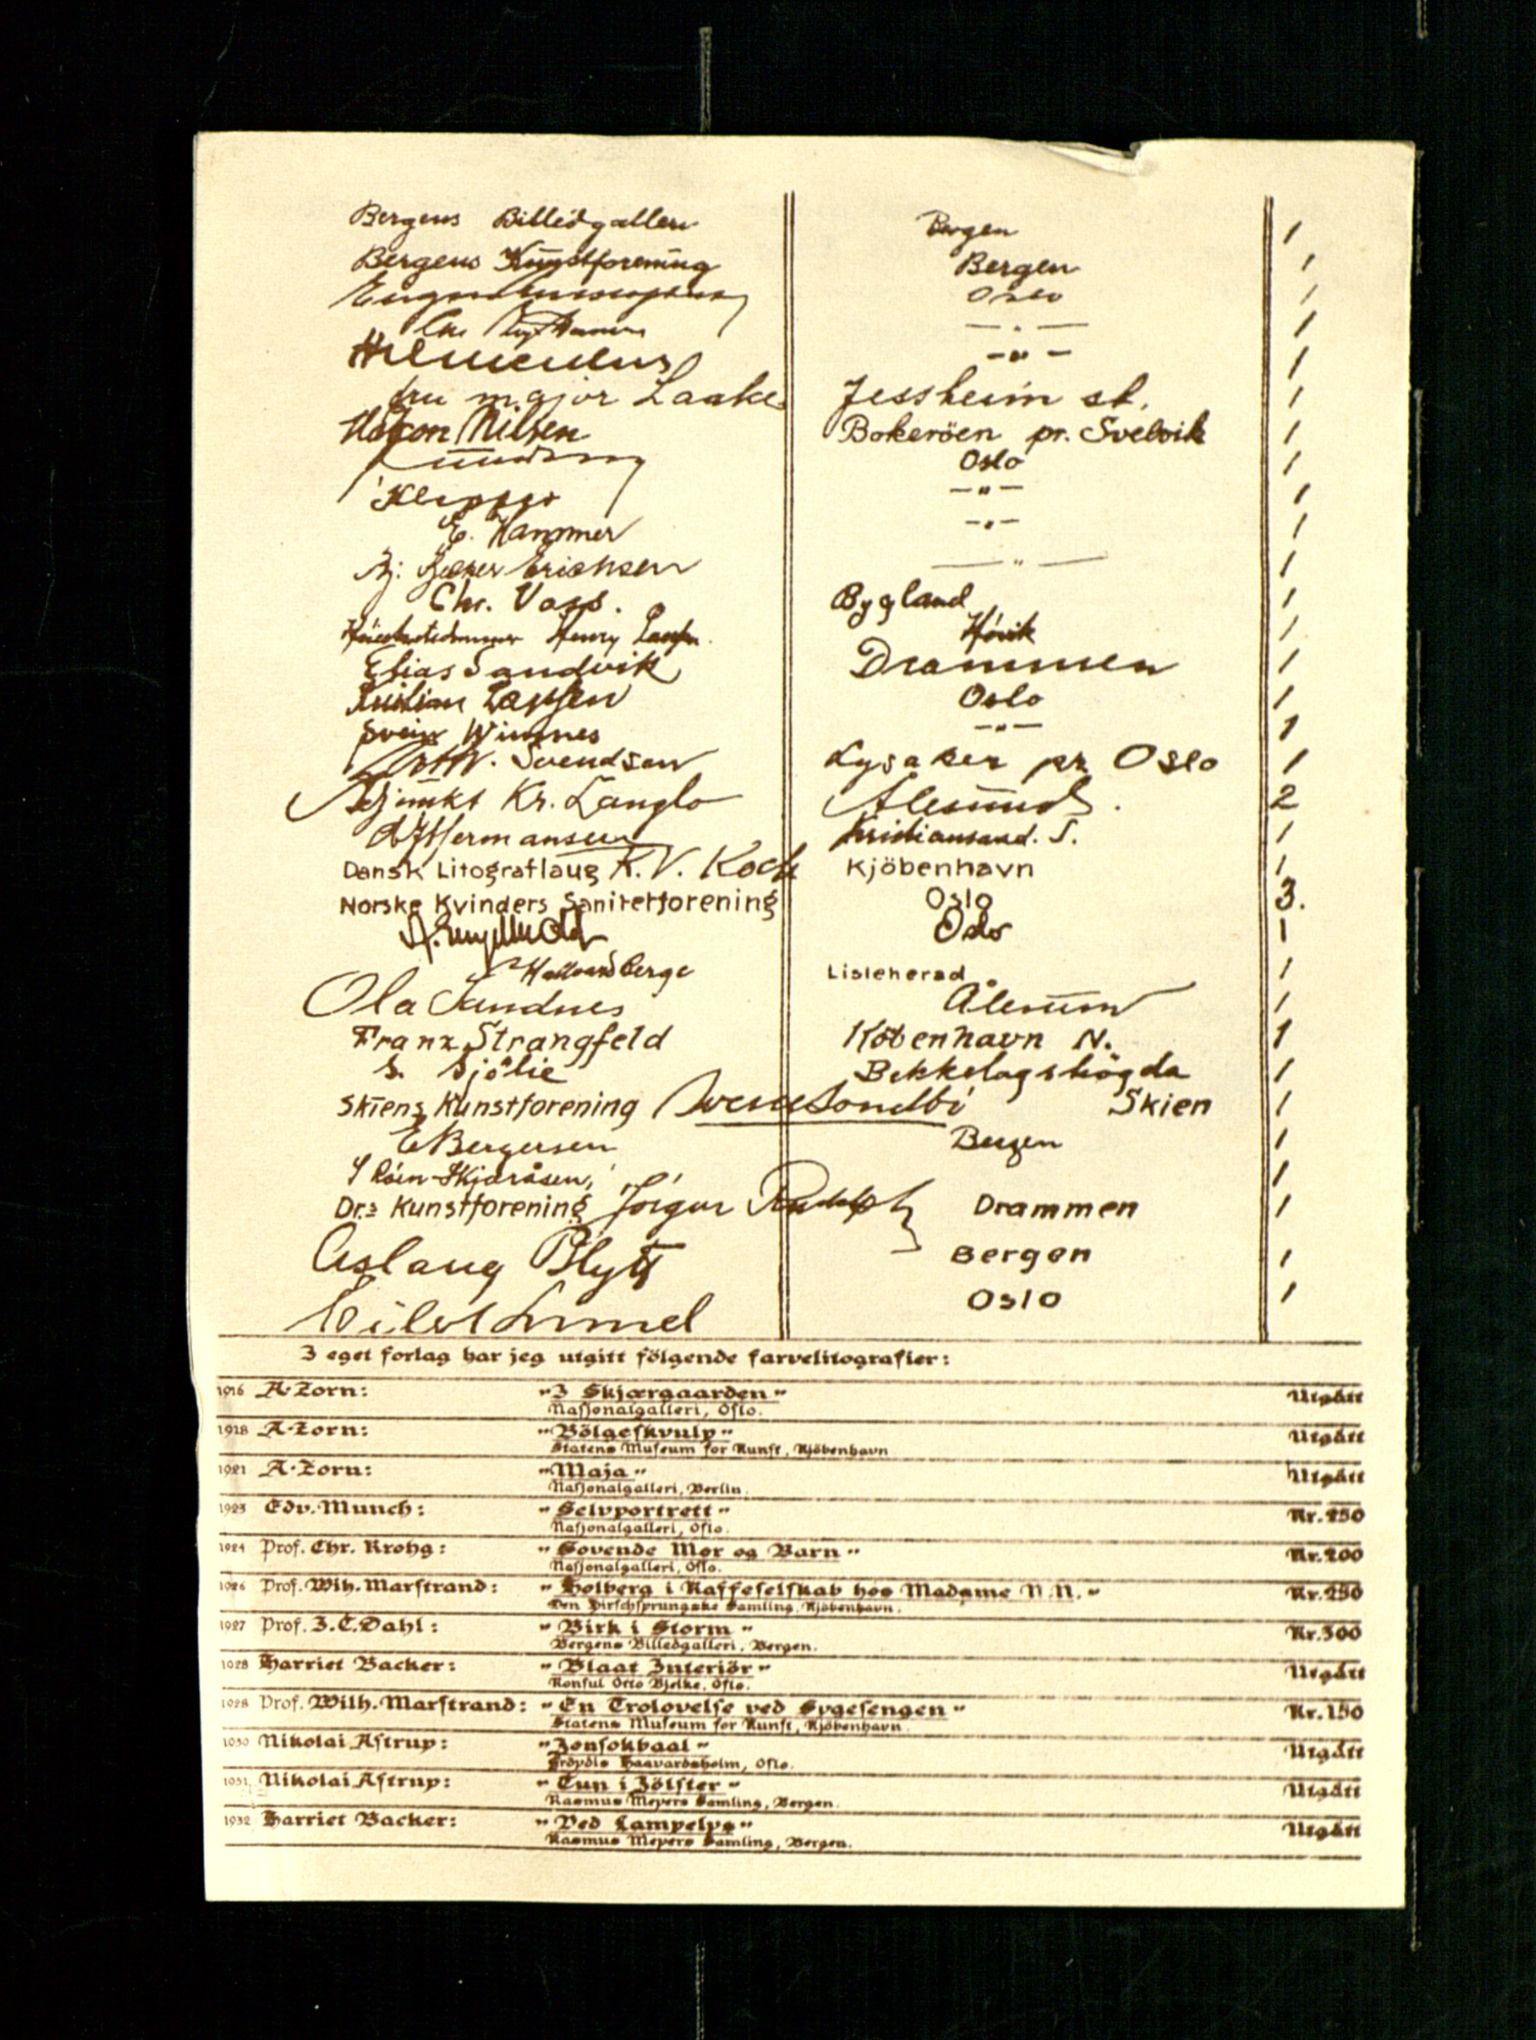 Bergens Billedgalleri Bergen 1
Bergens Kunstforening Bergen 1
Oslo 1
— " — 1
— " — 1
fru major Laake Jessheim st. 1
Håkon Nilsen Bokeröen pr. Svelvik 1
Oslo 1
— " — 1
E. Hammer — " — 1
Becker Erichsen — " — 1
Chr. Voss. Bygland 1
Henry Hövik 1
Elias Sandvik Drammen 1
Kristian Larssen Oslo 1
Svein Wimnes — " — 1
Svendsen Lysaker pr Oslo 1
Adjunkt Kr. Langlo Ålesund. 2
Hermansen Kristiansand. S. 1
Dansk Litograflaug K. V. Koch Kjöbenhavn 1
Norske Kvinders Sanitetforening Oslo 3.
Oslo 1
Hallvard Berge Lisleherad 1
Ola Sandnes Ålesund 1
Franz Strangfeld Köbenhavn N. 1
S. Sjölie Bekkelagshögda 1
Skiens Kunstforening Skien 1
E Bergersen Bergen 1
Skjæråsen, 1
Dr.s Kunstforening Rudolph Drammen 1
Aslaug Blytt Bergen 1
Oslo 1
I eget forlag har jeg utgitt fölgende farvelitografier:
1916 A. Zorn: "I Skjærgaarden" Utgått
Nasjonalgalleri, Oslo.
1918 A. Zorn: "Bölgeskvulp" Utgått
Statens Museum for Kunst, Kjöbenhavn
1921 A. Zorn: "Maja" Utgått
Nasjonalgalleri, Berlin.
1923 Edv. Munch: "Selvportrett" Kr. 250
Nasjonalgalleri, Oslo.
1924 Prof. Chr. Krohg: "Sovende Mor og Barn" Kr. 200
Nasjonalgalleri, Oslo.
1926 Prof. Wih. Marstrand: "Holberg i Kaffeselskab hos Madame N.N." Kr. 250
Den Hirschsprungske Samling, Kjöbenhavn.
1927 Prof. I. C. Dahl: "Birk i Storm" Kr. 300
Bergens Billedgalleri, Bergen.
1928 Harriet Backer: "Blaat Interiör" Utgått
Konsul Otto Bjelke, Oslo.
1928 Prof. Wilh. Marstrand: "En Trolovelse ved Sygesengen" Kr. 150
Statens Museum for Kunst, Kjöbenhavn.
1930 Nikolai Astrup: "Jonsokbaal" Utgått
Fröydis Haavardsholm, Oslo.
1931 Nikolai Astrup: "Tun i Jölster" Utgått
Rasmus Meyers Samling, Bergen.
1932 Harriet Backer: "Ved Lampelys" Utgått
Rasmus Meyers Samling, Bergen.